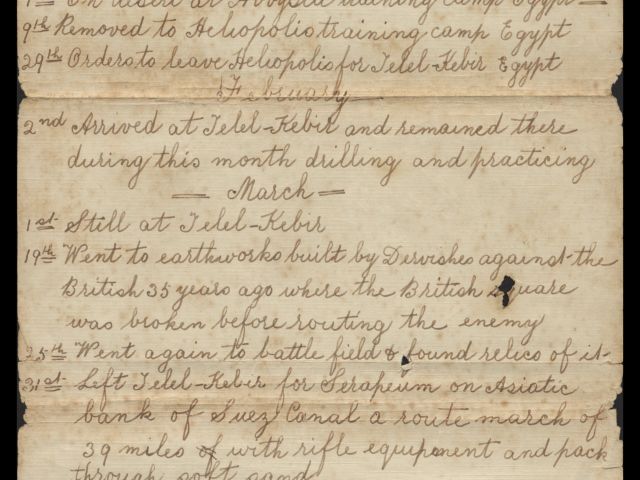 1st In desert at Abbyssia training camp Egypt —
9th Removed to Heliopolis training camp Egypt
29th Orders to leave Heliopolis for Telel-Kebir Egypt
February
2nd Arrived at Telel-Kebir and remained there
during this month drilling and practicing
— March —
1st Still at Telel-Kebir
19th Went to earthworks built by Dervishes against the
British 35 years ago where the British square
was broken before routing the enemy
25th Went again to battle field & found relics of it
31st Left Telel-Kebir for Serapeum on Asiatic
bank of Suez Canal a route march of
39 miles of with rifle equipment and pack
through soft sand